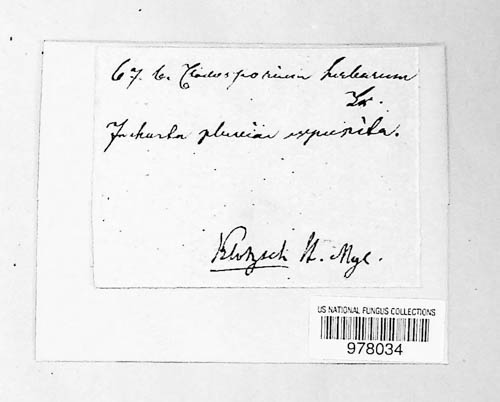 67. b. Cladosporium herbarum
Lk.
In charta pluviae exposita.
Klotzsch H. Myc.
US NATIONAL FUNGUS COLLECTIONS
978034